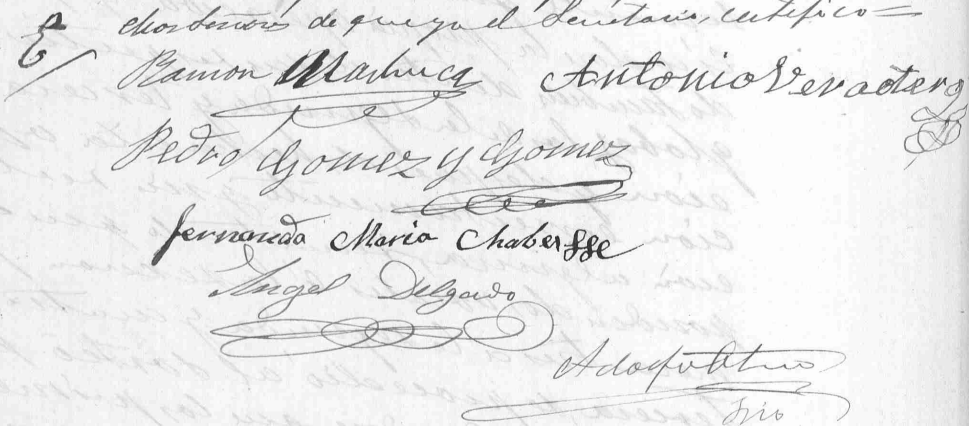 chos Señores de que yo el Secretario, certifico=
Ramon Machuca Antonio Veractero
Pedro Gomez y Gomez
fernando Maria Chabersse
Angel Delgado
Adolfo
Srio